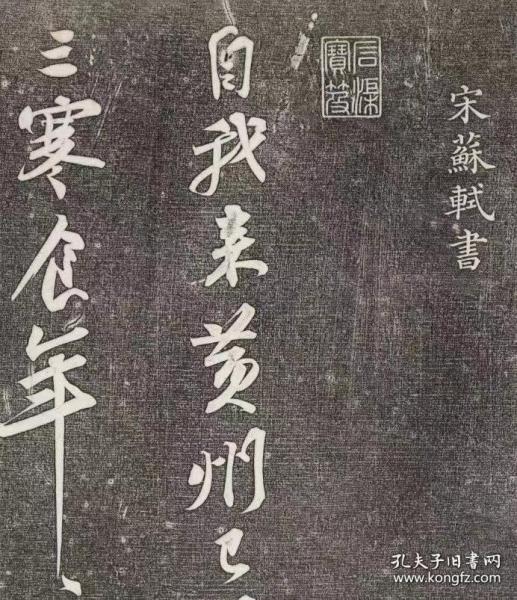 宋蘇軾書
石渠寶笈
自我来黄州已
三寒食年、
孔夫子旧书网
www.kongfz.com